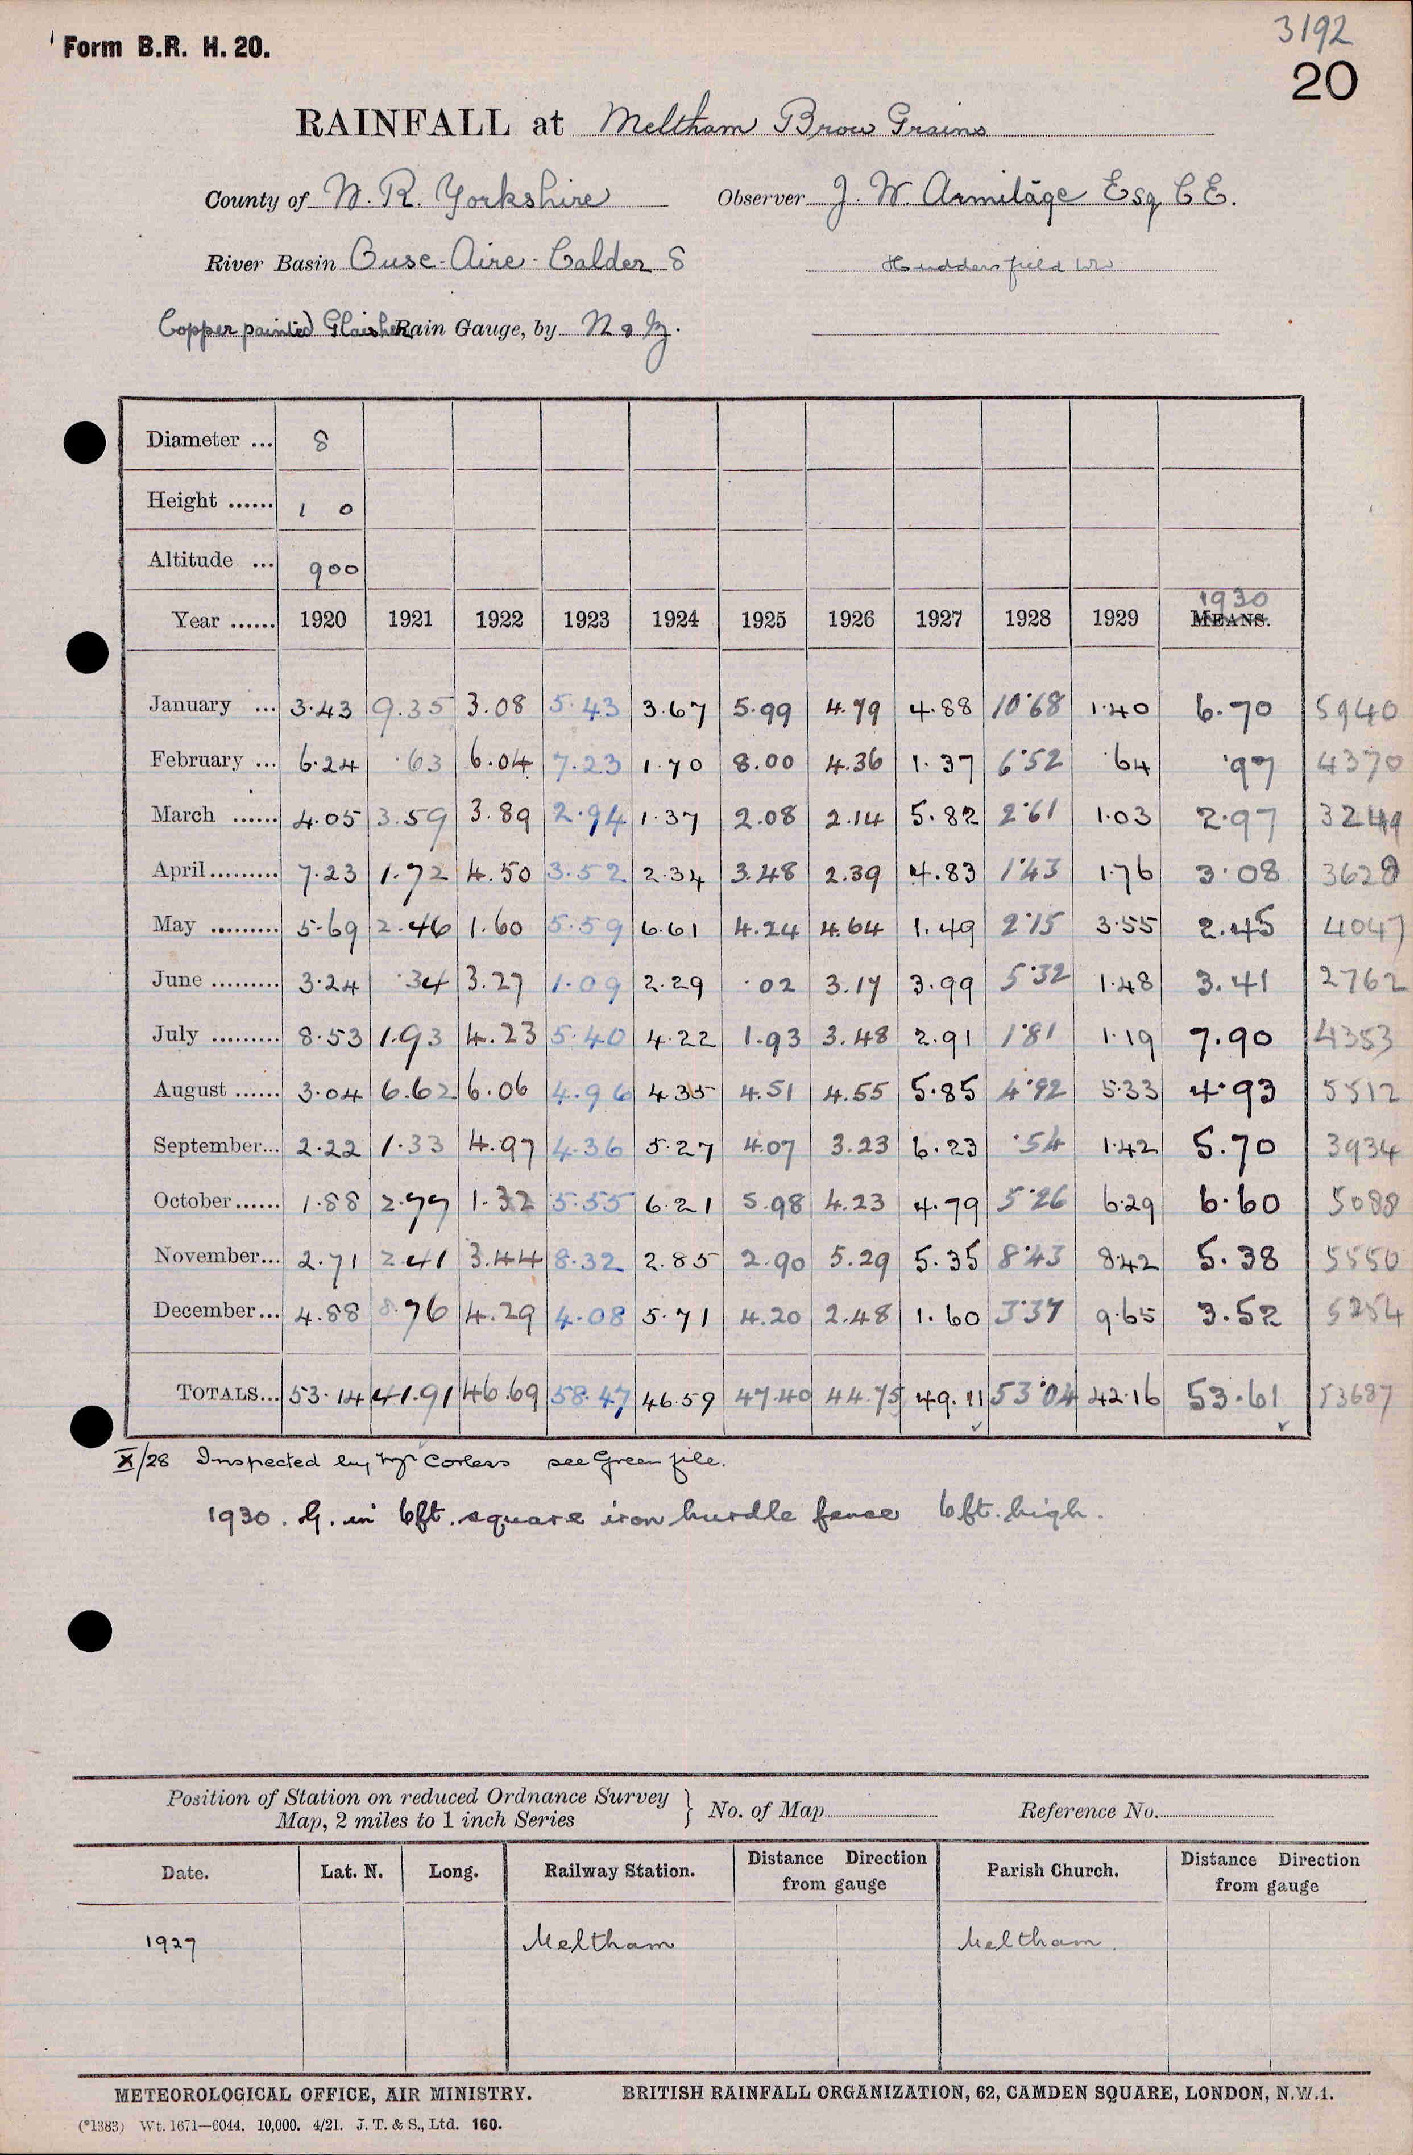 3192
Form B.R. H. 20.
20
RAINFALL at Meltham Brow Grains
County of W. R. Yorkshire Observer J. W. Armitage Esq C E.
River Basin Ouse - Aire - Calder 8 Huddersfield W
Copper painted Glaisher Rain Gauge, by N & Z.
Diameter ... 8
Height ...... 1 0
Altitude ... 900
1930
Year ...... 1920 1921 1922 1923 1924 1925 1926 1927 1928 1929 MEANS.
January ... 3.43 9.35 3.08 5.43 3.67 5.99 4.79 4.88 10.68 1.40 6.70 5940
February ... 6.24 .63 6.04 7.23 1.70 8.00 4.36 1.37 6.52 .64 .97 4370
March ...... 4.05 3.59 3.89 2.94 1.37 2.08 2.14 5.82 2.61 1.03 2.97 3249
April......... 7.23 1.72 4.50 3.52 2.34 3.48 2.39 4.83 1.43 1.76 3.08 3628
May ......... 5.69 2.46 1.60 5.59 6.61 4.24 4.64 1.49 2.15 3.55 2.45 4047
June ......... 3.24 .34 3.27 1.09 2.29 .02 3.17 3.99 5.32 1.48 3.41 2762
July ......... 8.53 1.93 4.23 5.40 4.22 1.93 3.48 2.91 1.81 1.19 7.90 4353
August ...... 3.04 6.62 6.06 4.96 4.35 4.51 4.55 5.85 4.92 5.33 4.93 5512
September... 2.22 1.33 4.97 4.36 5.27 4.07 3.23 6.23 .54 1.42 5.70 3934
October...... 1.88 2.77 1.32 5.55 6.21 5.98 4.23 4.79 5.26 6.29 6.60 5088
November... 2.71 2.41 3.44 8.32 2.85 2.90 5.29 5.35 8.43 8.42 5.38 5550
December... 4.88 8.76 4.29 4.08 5.71 4.20 2.48 1.60 3.37 9.65 3.52 5254
TOTALS... 53.14 41.91 46.69 58.47 46.59 47.40 44.75 49.11 53.04 42.16 53.61 53687
X/28 Inspected by Mr Corless see Green file.
1930. G. in 6ft. square iron hurdle fence 6ft. high.
Position of Station on reduced Ordnance Survey
Map, 2 miles to 1 inch Series } No. of Map Reference No.
Date. Lat. N. Long. Railway Station. Distance Direction from gauge Parish Church. Distance Direction from gauge
1927 Meltham Meltham.
METEOROLOGICAL OFFICE, AIR MINISTRY. BRITISH RAINFALL ORGANIZATION, 62, CAMDEN SQUARE, LONDON, N.W.1.
(*1383) Wt. 1671—6044. 10,000. 4/21. J. T. & S., Ltd. 160.